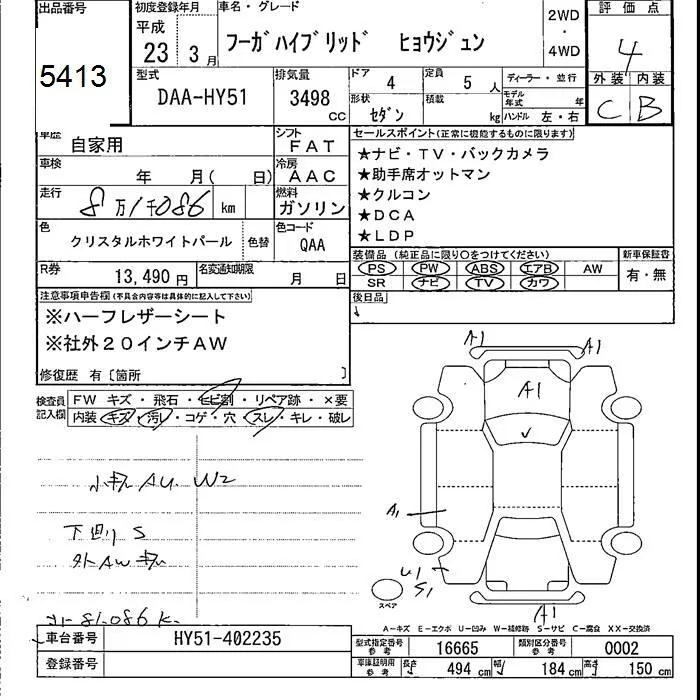 出品番号
5413
初度登録年月
平成
23 3月
車名・グレード
フーガハイブリッド ヒョウジュン
2WD
・
4WD
評価点
4
外装 内装
C B
型式
DAA-HY51
排気量
3498 cc
ドア 4
定員 5 人
ディーラー・並行
形状 セダン
積載 kg
モデル年式 年
ハンドル 左・右
車歴 自家用
シフト FAT
車検 年 月( 日)
冷房 AAC
走行 8万1千086 km
燃料 ガソリン
色 クリスタルホワイトパール
色替
色コード QAA
R券 13,490円
名変通知期限 月 日
セールスポイント(正常に機能するものに限ります)
★ナビ・TV・バックカメラ
★助手席オットマン
★クルコン
★DCA
★LDP
装備品(純正品に限り○をつけてください)
PS PW ABS エアB AW
SR ナビ TV カワ
新車保証書
有・無
後日品
注意事項申告欄(不具合内容等は具体的に記入して下さい)
※ハーフレザーシート
※社外20インチAW
修復歴 有〔箇所 〕
検査員記入欄
FW キズ・飛石・ヒビ割・リペア跡・×要
内装 キズ・汚レ・コゲ・穴・スレ・キレ・破レ
小キズ AU W2
下回り S
外AWキズ
81.086 K
A1
A1
A1
A1
U1
S1
A1
スペア
A-キズ E-エクボ U-凹み W-補修跡 S-サビ C-腐食 XX-交換済
車台番号 HY51-402235
登録番号
型式指定番号 参考 16665
類別区分番号 参考 0002
車庫証明用 参考 長さ 494 cm 幅 184 cm 高さ 150 cm